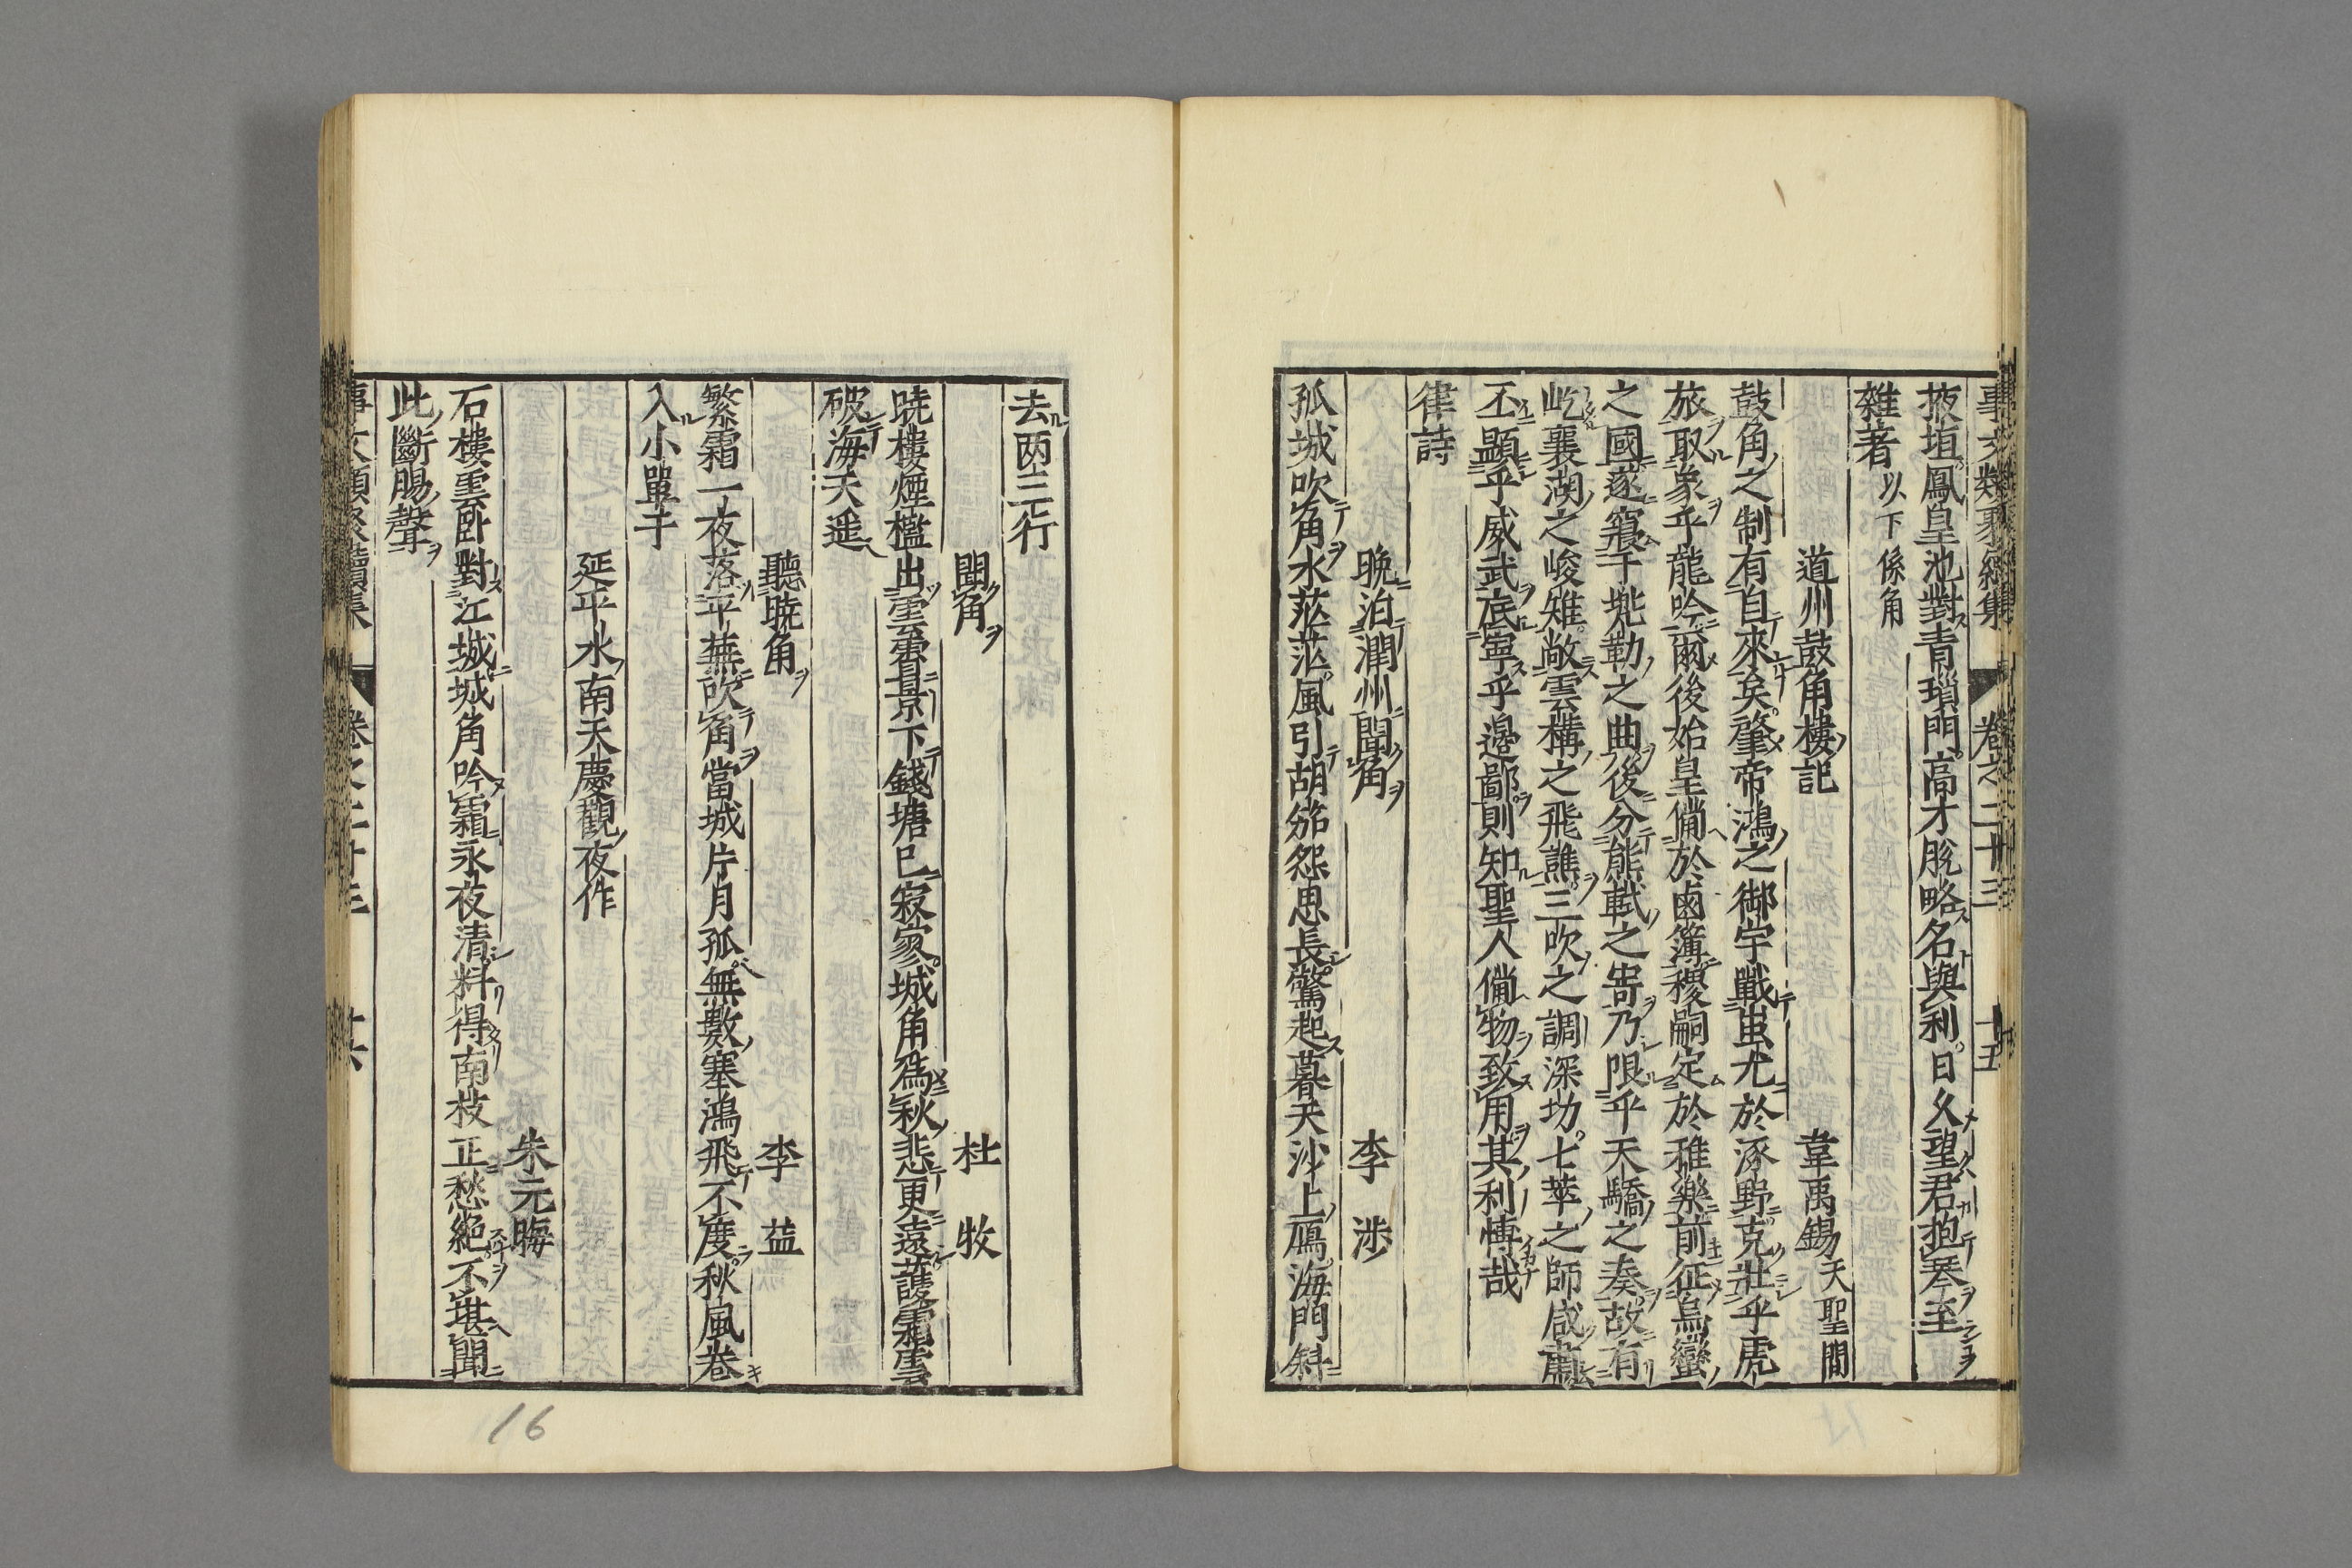 事文類聚續集 卷之二十三 十五
掖垣鳳皇池對青瑣門高才脫略名與利日久望君抱琴至
雜著 以下係角
道州鼓角樓記 韋禹錫 天聖間
鼓角之制有自來矣肇帝鴻之御宇戰蚩尤於涿野克壯乎虎
旅取象乎龍吟爾後始皇俻於鹵簿穆嗣定於稚樂前征烏蠻
之國遂寢于㙮勒之曲後分熊軾之寄乃限乎天驕之奏故有
屹襄湖之峻雉敞雲構之飛譙三吹之調深坊七萃之師咸肅
丕顯乎威武底寧乎邊鄙則知聖人俻物致用其利愽哉
律詩
晚泊潤州聞角 李 涉
孤城吹角水茫茫風引胡笳怨思長驚起暮天沙上鴈海門斜
去两三行
聞角 杜 牧
暁樓煙檻出雲霄景下錢塘已寂寥城角爲秋悲更遠護霜雲
破海天遥
聽暁角 李 益
繁霜一夜落平蕪吹角當城片月孤無數塞鴻飛不度秋風卷
入小單于
延平水南天慶觀夜作
朱元晦
石樓雲卧對江城城角吟霜永夜清料得南枝正愁絶不堪聞
此斷腸聲
事文類聚續集 卷之二十三 十六
16